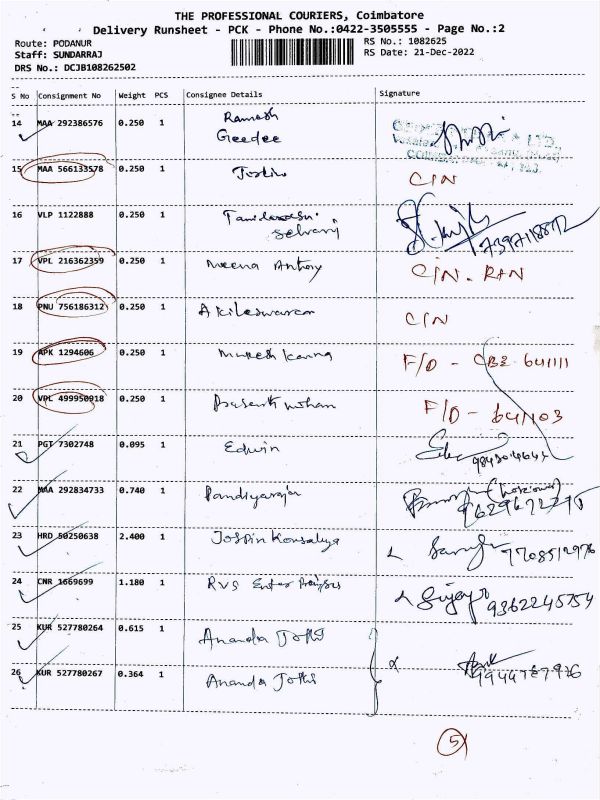 THE PROFESSIONAL COURIERS, Coimbatore
Delivery Runsheet - PCK - Phone No.:0422-3505555 - Page No.:2
Route: PODANUR
RS No.: 1082625
Staff: SUNDARRAJ
RS Date: 21-Dec-2022
DRS No.: DCJB108262502
S No Consignment No Weight PCS Consignee Details Signature
14 MAA 292386576 0.250 1 Ramesh
Geedee
15 MAA 566133578 0.250 1 CIN
16 VLP 1122888 0.250 1 Selvaraj
17 VPL 216362359 0.250 1 Meena Antony CIN. RAN
18 PNU 756186312 0.250 1 Akileswaran CIN
19 APK 1294606 0.250 1 Mukesh Kanna F/D - CBE 641111
20 VPL 499950918 0.250 1 Prasanth mohan F/D - 641103
21 PGT 7302748 0.095 1 Edwin
22 MAA 292834733 0.740 1 Pandiyaraja
23 HRD 50250638 2.400 1 Jospin Kousalya 7708512976
24 CNR 1669699 1.180 1 RVS Enterprises 9362245754
25 KUR 527780264 0.615 1 Ananda Jothi
26 KUR 527780267 0.364 1 Ananda Jothi
5